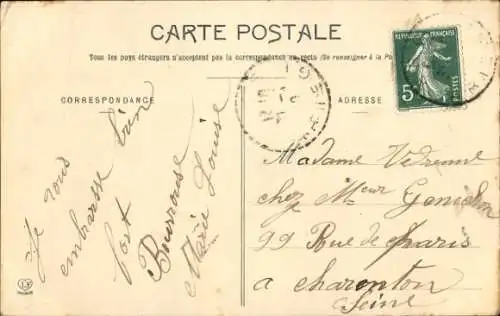 CARTE POSTALE
Tous les pays étrangers n'acceptent pas la correspondance au recto (Se renseigner à la Po
CORRESPONDANCE
ADRESSE
REPUBLIQUE FRANÇAISE
5
Je vous
embrasse bien
fort
Marie Louise
Madame Vedrenne
chez Meur
99 Rue de Paris
a charenton
Seine